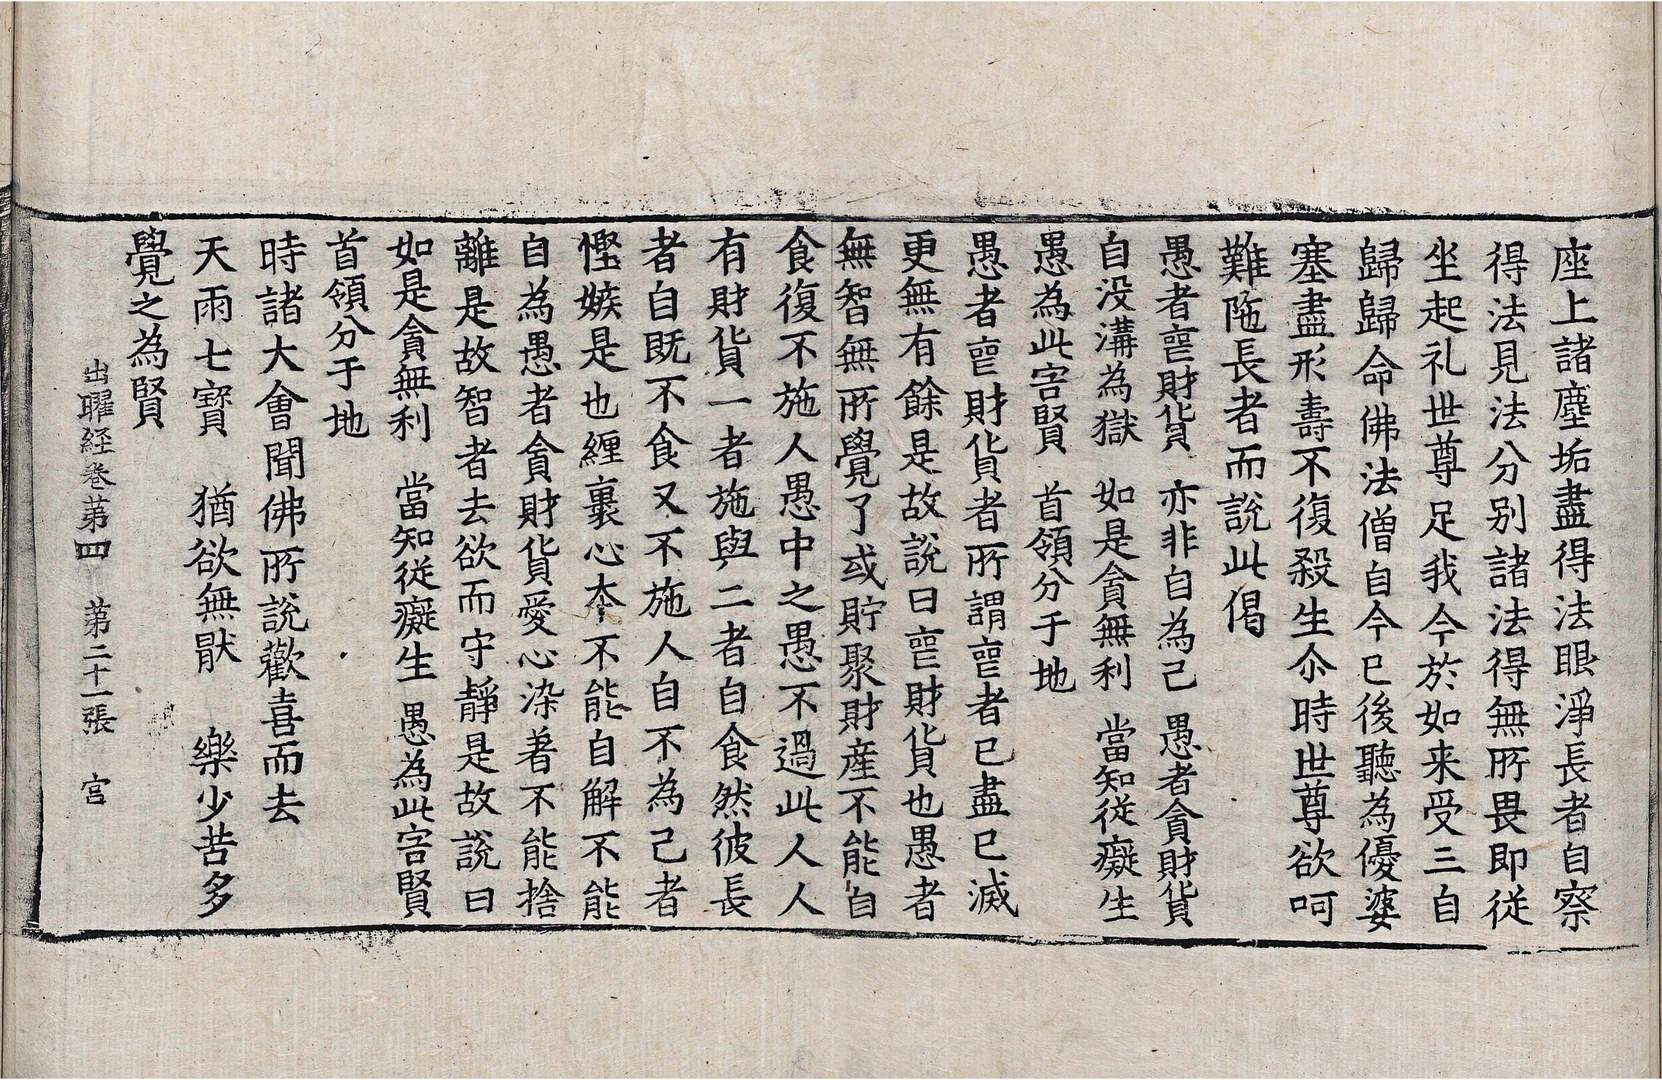 座上諸塵垢盡得法眼淨長者自察
得法見法分别諸法得無所畏即從
坐起礼世尊足我今於如来受三自
歸歸命佛法僧自今已後聽為優婆
塞盡形壽不復殺生尒時世尊欲呵
難陁長者而說此偈
愚者𠷔財貨 亦非自為己 愚者貪財貨
自没溝為獄 如是貪無利 當知從癡生
愚為此害賢 首領分于地
愚者𠷔財貨者所謂𠷔者已盡已滅
更無有餘是故說曰𠷔財貨也愚者
無智無所覺了或貯聚財産不能自
食復不施人愚中之愚不過此人人
有財貨一者施與二者自食然彼長
者自既不食又不施人自不為己者
慳嫉是也纒裹心夲不能自解不能
自為愚者貪財貨愛心染著不能捨
離是故智者去欲而守靜是故說曰
如是貪無利 當知從癡生 愚為此害賢
首領分于地
時諸大會聞佛所說歡喜而去
天雨七寶 猶欲無猒 樂少苦多
覺之為賢
出曜經卷第四 第二十一張 宫